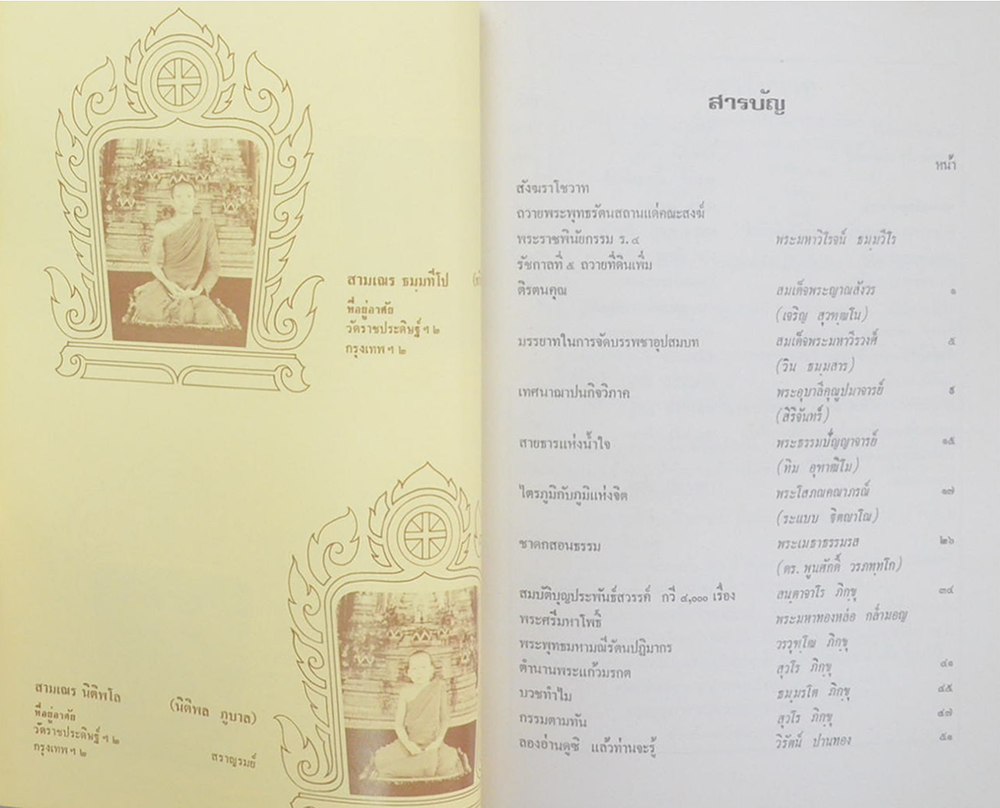 สามเณร ธมฺมทีโป
ที่อยู่อาศัย
วัดราชประดิษฐ์ ฯ ๒
กรุงเทพ ฯ ๒
สามเณร นิติพโล (นิติพล ภูบาล)
ที่อยู่อาศัย
วัดราชประดิษฐ์ ฯ ๒
กรุงเทพ ฯ ๒
สราญรมย์
สารบัญ
หน้า
สังฆราโชวาท
ถวายพระพุทธรัตนสถานแด่คณะสงฆ์
พระราชพินัยกรรม ร.๔ พระมหาวิโรจน์ ธมฺมวีโร
รัชกาลที่ ๕ ถวายที่ดินเพิ่ม
ติรตนคุณ สมเด็จพระญาณสังวร ๑
(เจริญ สุวฑฺฒโน)
มรรยาทในการจัดบรรพชาอุปสมบท สมเด็จพระมหาวีรวงศ์ ๕
(วิน ธมฺมสาร)
เทศนาฌาปนกิจวิภาค พระอุบาลีคุณูปมาจารย์ ๙
(สิริจันทร์)
สายธารแห่งน้ำใจ พระธรรมปัญญาจารย์ ๑๕
(ทิม อุฑาฒิโม)
ไตรภูมิกับภูมิแห่งจิต พระโสภณคณาภรณ์ ๑๗
(ระแบบ ฐิตญาโณ)
ชาดกสอนธรรม พระเมธาธรรมรส ๒๖
(ดร. พูนศักดิ์ วรภทฺทโก)
สมบัติบุญประพันธ์สวรรค์ กวี ๔,๐๐๐ เรื่อง สนฺตาจาโร ภิกฺขุ ๓๔
พระศรีมหาโพธิ์ พระมหาทองหล่อ กล้ามอญ
พระพุทธมหามณีรัตนปฏิมากร วรวุฑฺโฒ ภิกฺขุ
ตำนานพระแก้วมรกต สุวโร ภิกฺขุ ๔๑
บวชทำไม ธมฺมรโต ภิกฺขุ ๔๕
กรรมตามทัน สุวโร ภิกฺขุ ๔๗
ลองอ่านดูซิ แล้วท่านจะรู้ วิรัตน์ ปานทอง ๕๑